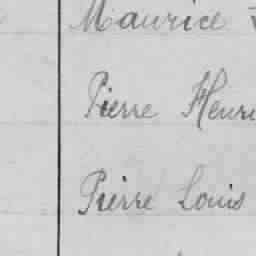 Maurice
Pierre Henri
Pierre Louis